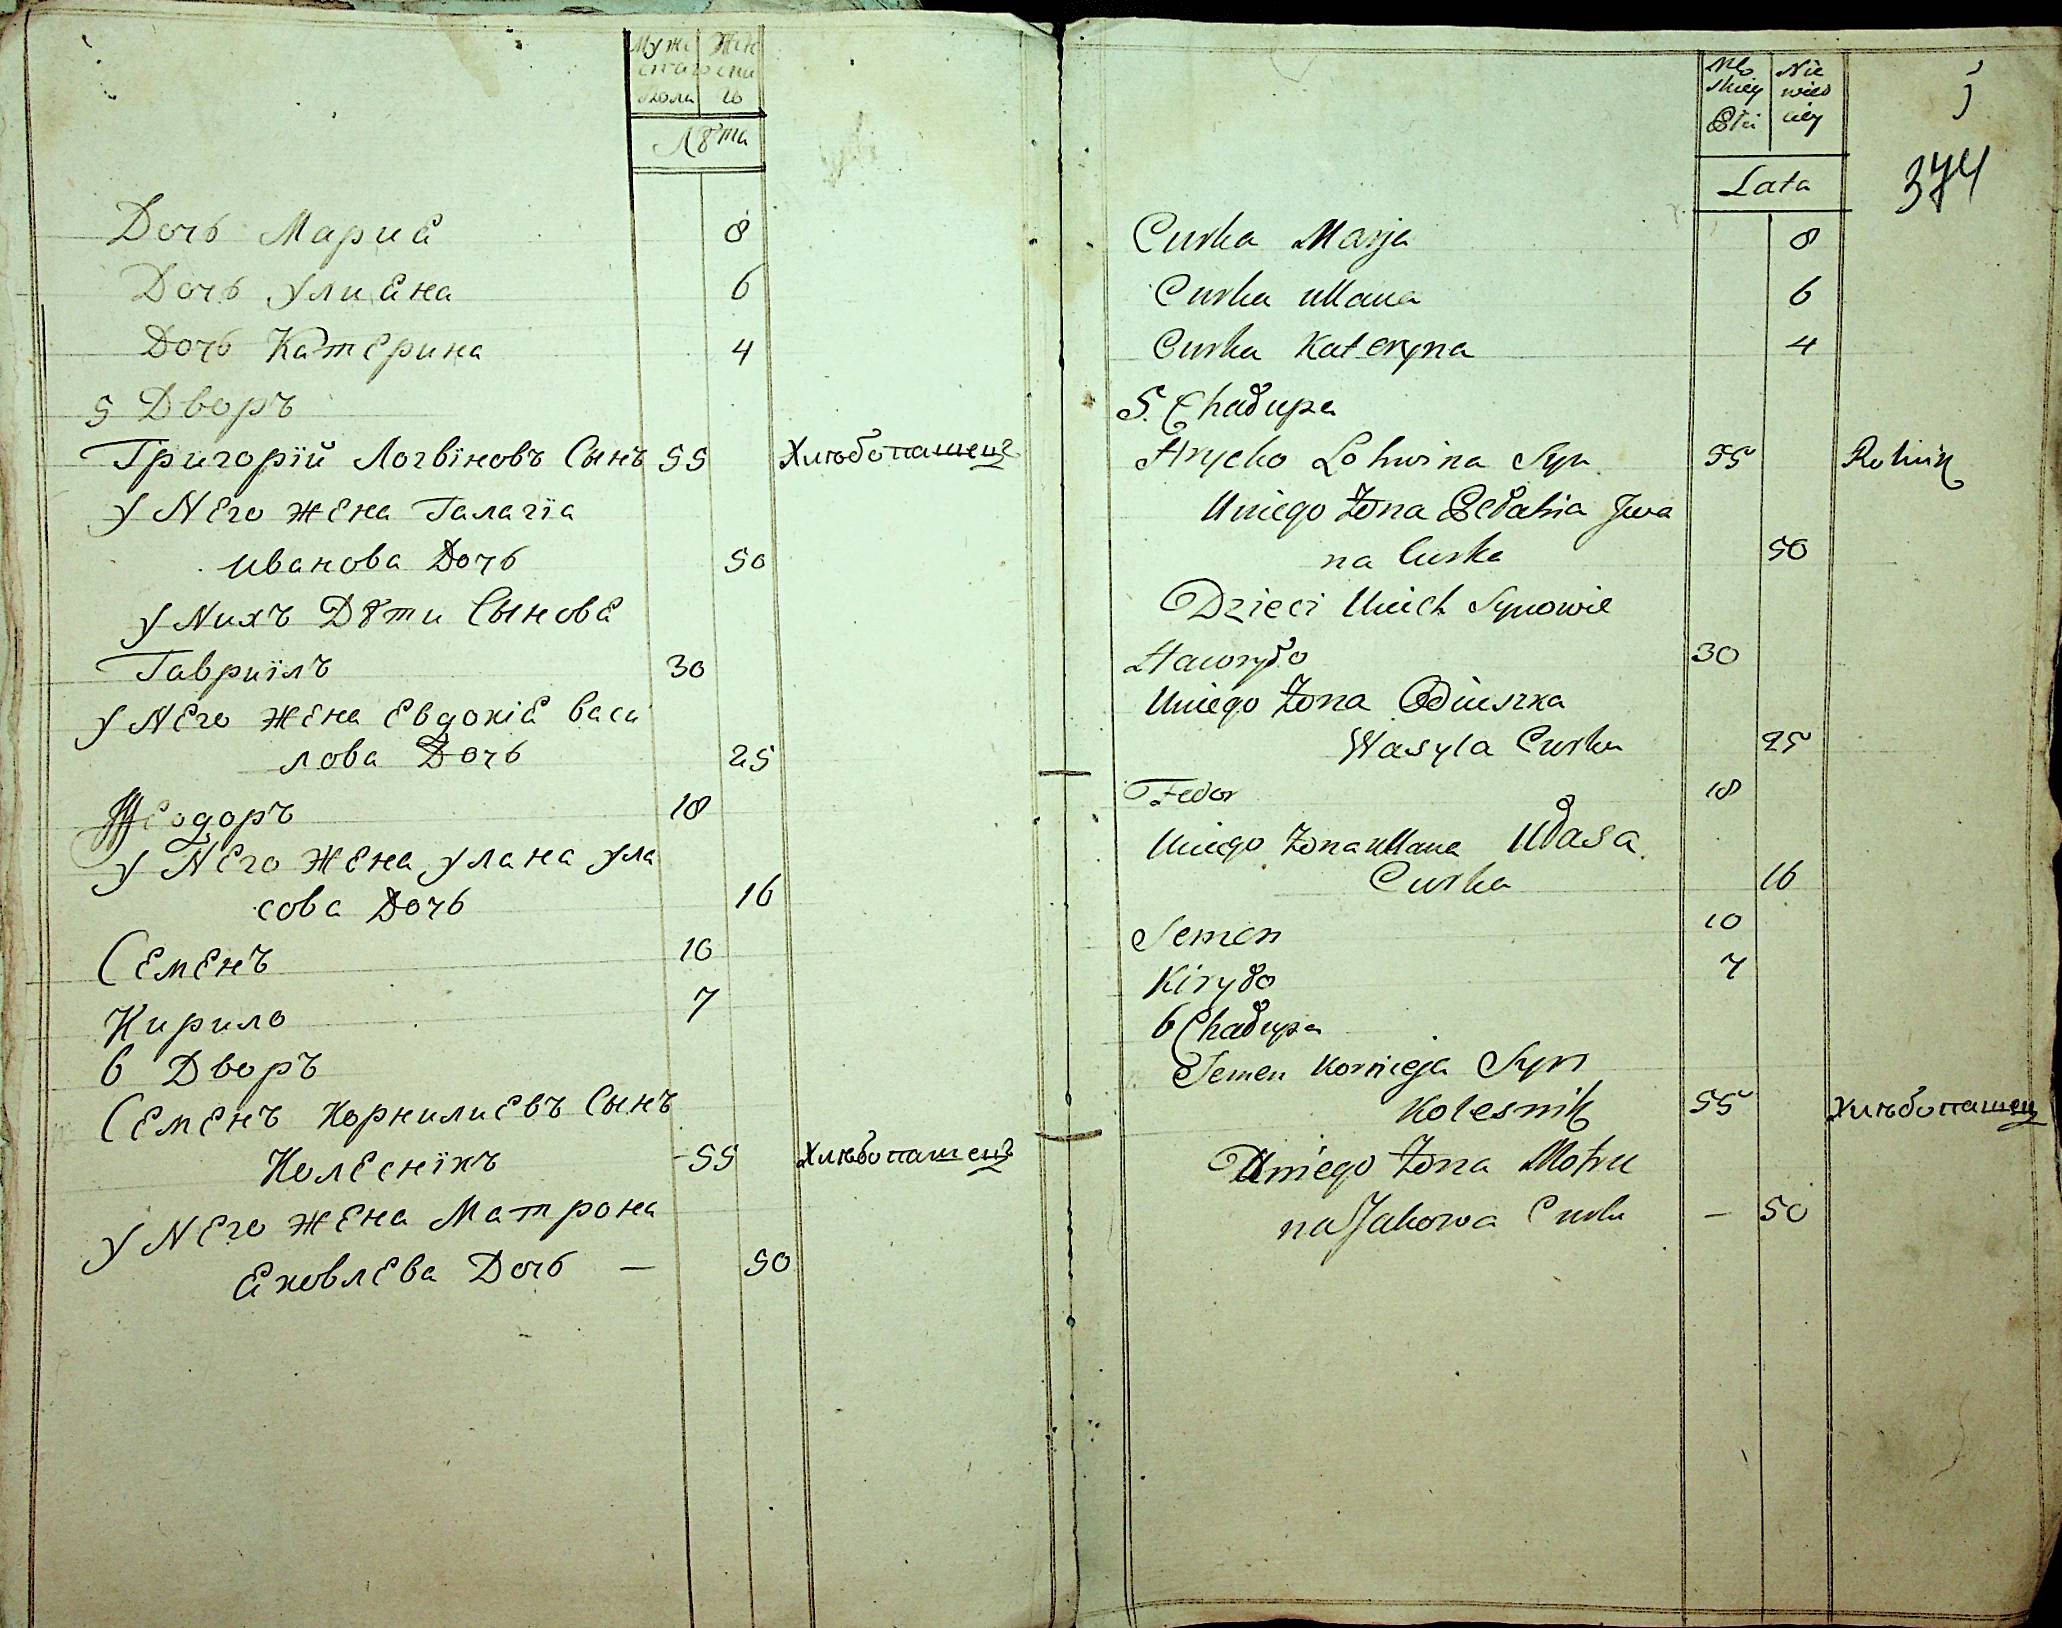 Муже Жен
скаго ска
Пола го
Лѣта
Дочь Мариа 8
Дочь Улиана 6
Дочь Катерина 4
5 Дворъ
Григорїй Логвїновъ Сынъ 55 Хлѣбопашецъ
У Него жена Галагїа
Иванова Дочь 50
У Нихъ Дѣти Сынова
Гавриїлъ 30
У Него жена Евдокіа Васи
лова Дочь 25
Феодоръ 18
У Него жена Улана Ула
сова Дочь 16
Семенъ 10
Кирило 7
6 Дворъ
Семенъ Корнилиевъ Сынъ
Колеснїкъ 55 Хлѣбопашецъ
У Него жена Матрона
Яковлева Дочь — 50
Mę Nie
skiey wies
Płci ciey
Lata
374
Curka Marja 8
Curka Ullana 6
Curka Kateryna 4
5. Chałupa
Hrycko Lohwina Syn 55 Rolnik
Uniego Żona Pełahia Jwa
na Curka 50
Dzieci Unich Synowie
Hawryło 30
Uniego Żona Odiuszka
Wasyla Curka 25
Fedor 18
Uniego Żona Ullana Ułasa
Curka 16
Semen 10
Kiryło 7
6 Chałupa
Semen Kornieja Syn
Kolesnik 55 Хлѣбопашец
Uniego Żona Motru
na Jakowa Curka — 50